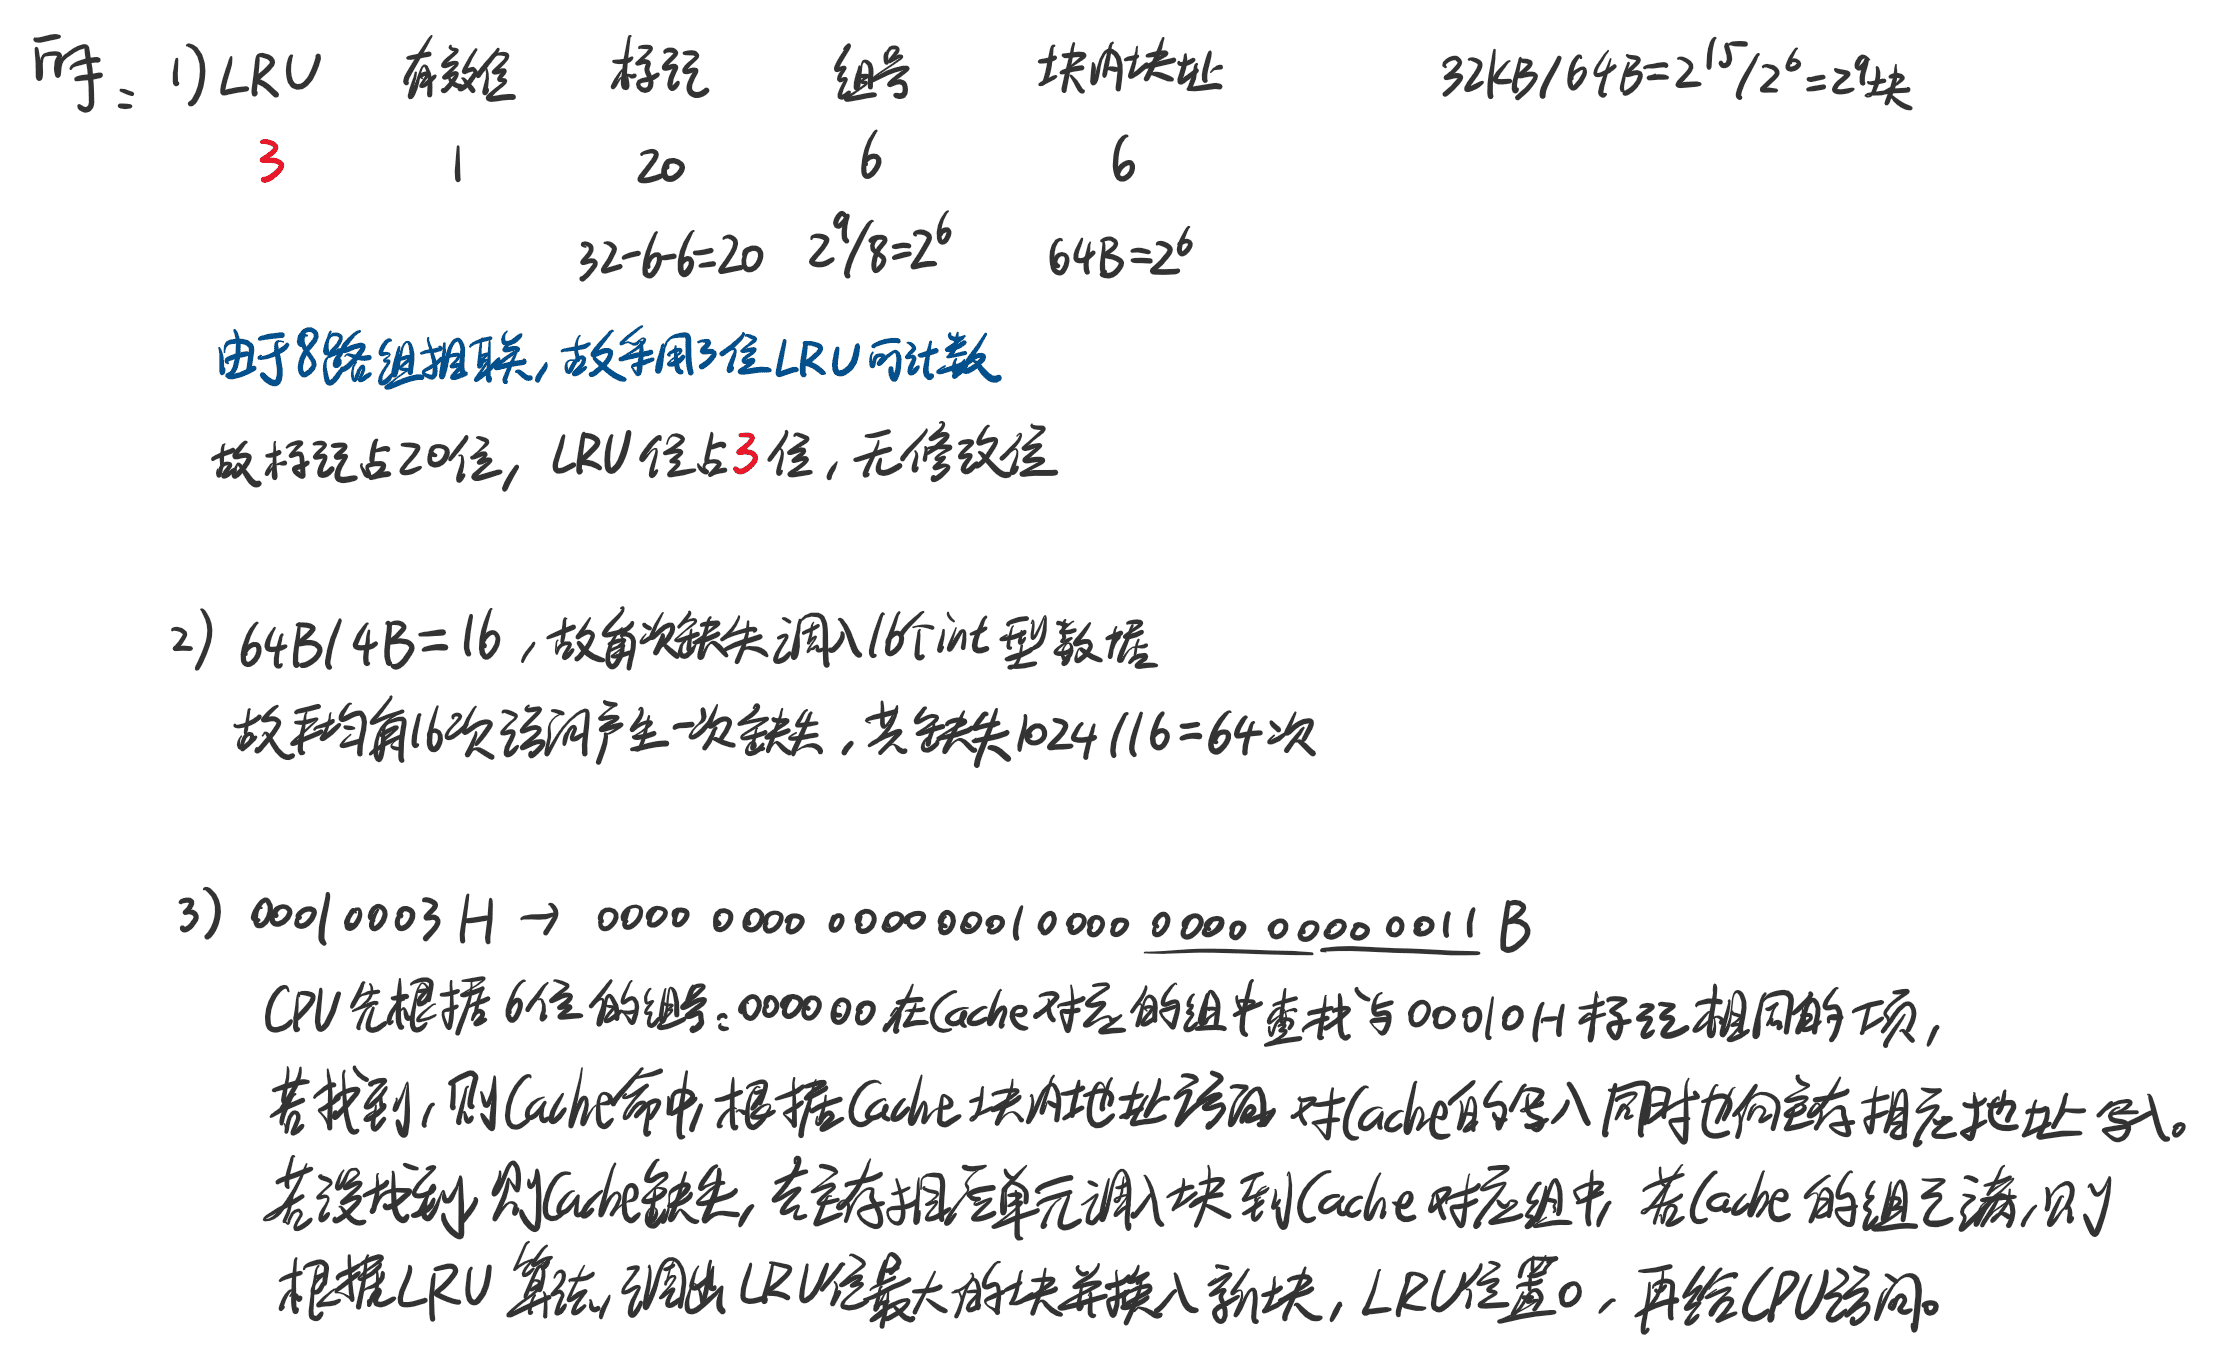 解: 1) LRU 有效位 标记 组号 块内块址 32KB/64B=2^15/2^6=2^9块
3 1 20 6 6
32-6-6=20 2^9/8=2^6 64B=2^6
由于8路组相联,故采用3位LRU可计数
故标记占20位, LRU位占3位, 无修改位
2) 64B/4B=16, 故每次缺失调入16个int型数据
故平均每16次访问产生一次缺失, 共缺失1024/16=64次
3) 00010003H → 0000 0000 0000 0001 0000 0000 0000 0011 B
CPU先根据6位的组号:000000在Cache对应的组中查找与00010H标记相同的项,
若找到, 则Cache命中, 根据Cache块内地址访问, 对Cache的写入同时也向主存相应地址写入。
若没找到, 则Cache缺失, 去主存相应单元调入块到Cache对应组中, 若Cache的组已满, 则
根据LRU算法, 调出LRU位最大的块并换入新块, LRU位置0, 再给CPU访问。